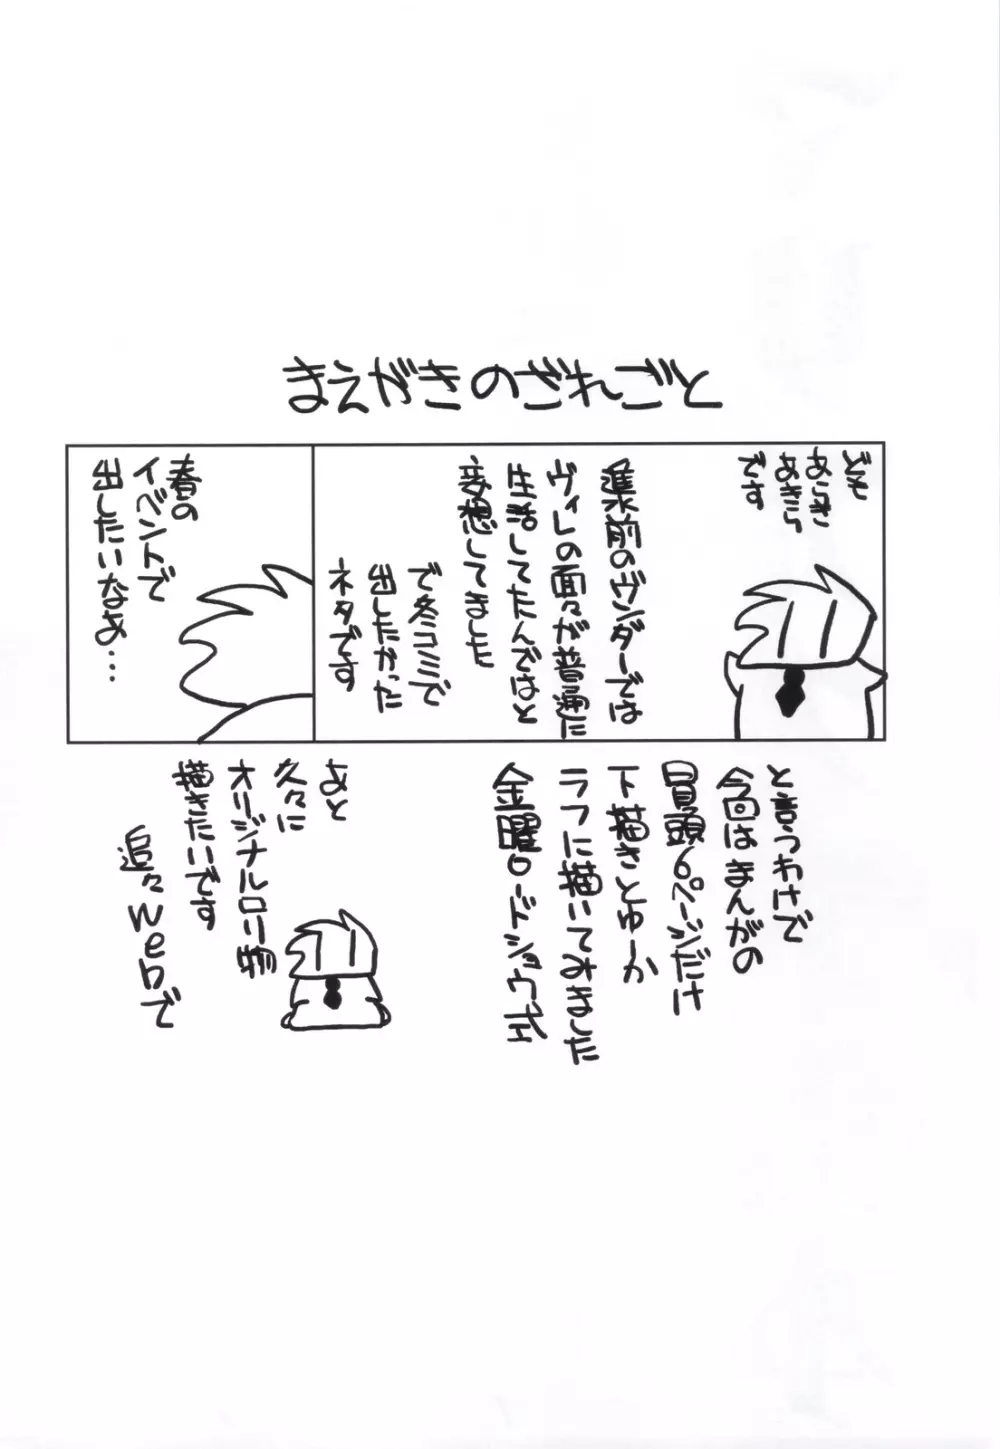 まえがきのざれごと
ども
あらき
あきら
です
準前のヴンダーでは
ヴィレの面々が普通に
生活してたんではと
妄想してました
で冬コミで
出したかった
ネタです
春の
イベントで
出したいなぁ…
と言うわけで
今回はまんがの
冒頭6ページだけ
下描きとゆーか
ラフに描いてみました
金曜ロードショウ式
あと
久々に
オリジナルロリ物
描きたいです
追々Webで